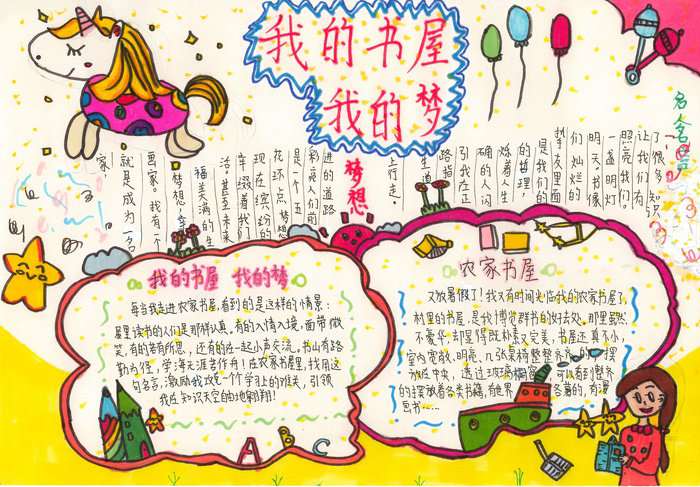 我的书屋
我的梦
了很多知识
让我们有
照亮我们
一盏明灯
明天。书像
们灿烂的
挚友里面
是我们的
的哲理，
烁着人生
确的人闪
引我在正
路指
生道
上行走。
梦想
进的道路
人们前
是一个五
现在缤纷的
缀着我们
活。甚至未来
福美满的生
就是成为一名
家
我的书屋 我的梦
每当我走进农家书屋，看到的是这样的情景：
屋里读书的人们是那样认真，有的入情入境，面带微
笑，有的若有所思，还有的在一起小声交流。书山有路
勤为径，学海无涯苦作舟！在农家书屋里，我用这
句名言，激励我攻克一个个学习上的难关，引领
我在知识天空自由地翱翔！
A B C
农家书屋
又放暑假了！我又有时间光临我的农家书屋了，
村里的书屋，是我博览群书的好去处。那里虽然
不豪华，却显得既朴素又完美，书屋还真不小，
室内宽敞、明亮，几张桌椅整整齐齐的摆
放在中央，透过玻璃橱窗可以看到整齐
的摆放着各类书籍，有世界名著的，有漫
画书……